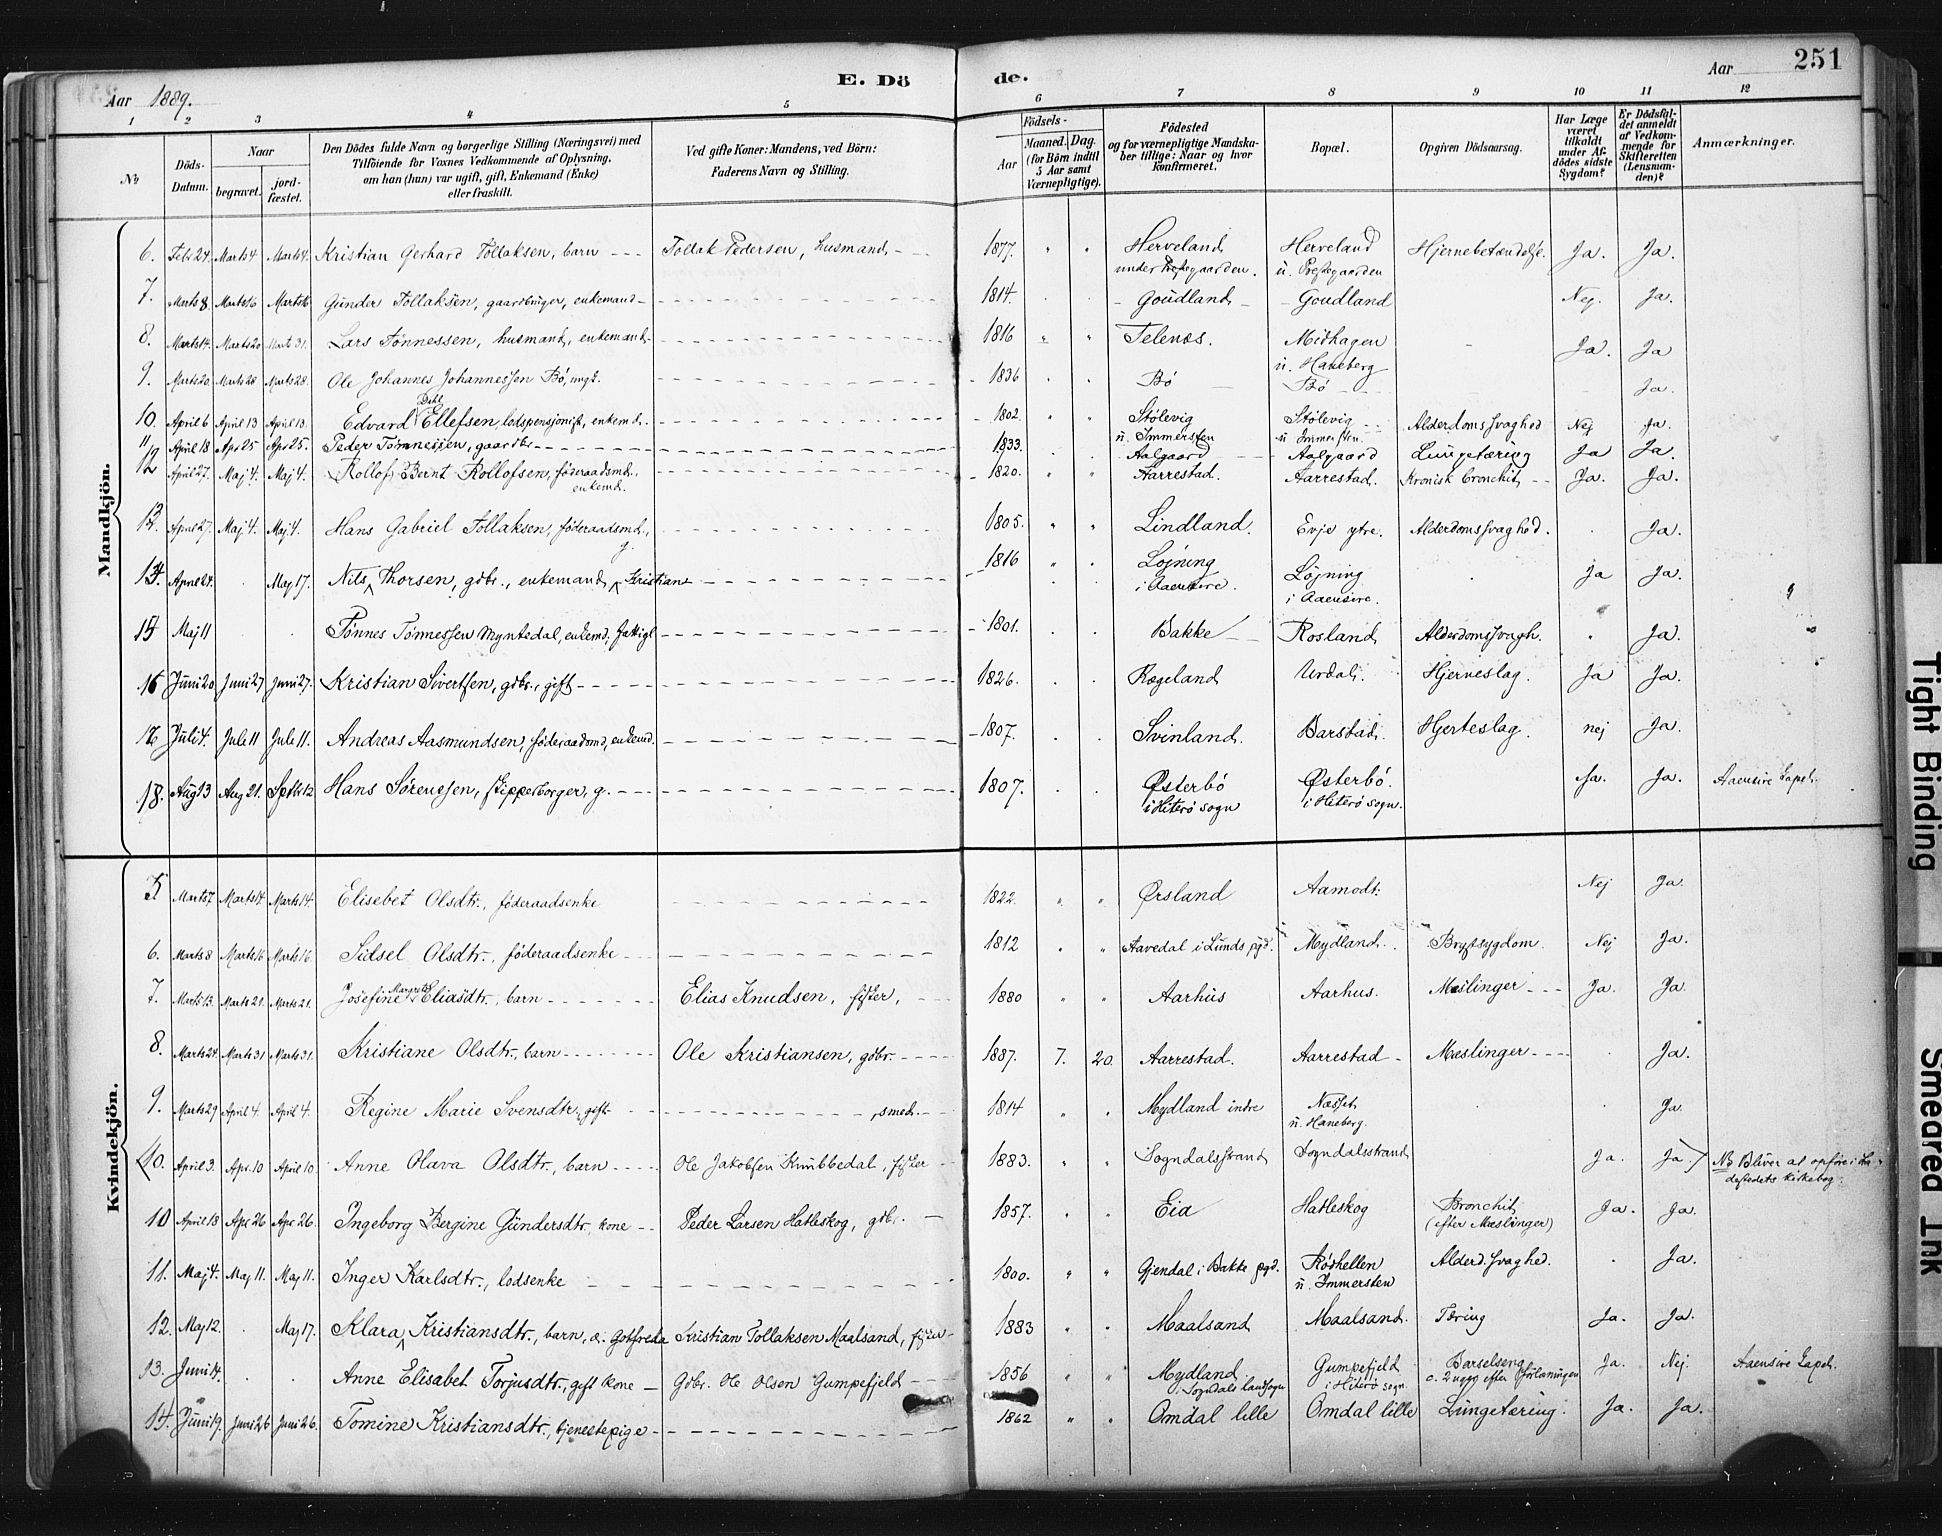 E. Dö de.
Aar 1889.
Aar 251
1 2 3 4 5 6 7 8 9 10 11 12
No
Döds-Datum.
Naar begravet. jordfæstet.
Den Dödes fulde Navn og borgerlige Stilling (Næringsvei) med Tilföiende for Voxnes Vedkommende af Oplysning, om han (hun) var ugift, gift, Enkemand (Enke) eller fraskilt.
Ved gifte Koner: Mandens, ved Börn: Faderens Navn og Stilling.
Födsels- Aar Maaned. Dag. (for Börn indtil 5 Aar samt Værnepligtige).
Födested og for værnepligtige Mandskaber tillige: Naar og hvor konfirmeret.
Bopæl.
Opgiven Dödsaarsag.
Har Læge været tilkaldt under Afdödes sidste Sygdom?
Er Dödsfaldet anmeldt af Vedkommende for Skifteretten (Lensmanden)?
Anmærkninger.
Mandkjön.
6. Febr 24. Marts 4 Marts 4. Kristian Gerhard Tollaksen, barn Tollak Pedersen, husmand 1877. Herveland under Prestegaarden. Herveland u. Prestegaarden Hjernebetændelse. Ja. Ja.
7. Marts 8 Marts 16 Marts 16 Gunder Tollaksen, gaardbruger, enkemand 1814. Goudland Goudland Nej. Ja.
8. Marts 14. Marts 20 Marts 31. Lars Tönnessen, husmand, enkemand 1816 Telenæs. Midhagen u. Haneberg Ja. Ja
9. Marts 20 Marts 28 Marts 28. Ole Johannes Johannessen Bö, ungk. 1836 Bö Bö Ja.
10. April 6 April 13 April 13. Edvard Ellefsen, lodspensjonist, enkemd. 1802. Stölevig u. Immersten Stölevig u. Immersten Alderdomssvaghed Nej Ja.
11 April 18 Apr 25 Apr 25. Peder Tönnessen, gaardbr. 1833. Aalgaard Aalgaard Lungetæring Ja Ja.
12 April 27. Maj 4. Maj 4. Rollof Bernt Rollofsen, föderaadsmd. enkemd. 1820. Aarrestad. Aarrestad. Kronisk bronchit Ja. Ja.
13. April 27. Maj 4. Maj 4. Hans Gabriel Tollaksen, föderaadsmd., g. 1805. Lindland. Evje ytre. Alderdomssvaghed. Ja.
14. April 24. Maj 17. Nils Thorsen, gdbr., enkemand Kristian 1816 Löjning i Aaensire. Löjning i Aaensire. Ja Ja.
15 Maj 11 Tönnes Tönnessen Myntedal, enkemd. fattigl. 1801. Bakke Rosland Alderdomssvagh. Ja.
16 Juni 20. Juni 27 Juni 27. Kristian Sivertsen, gdbr., gift 1826. Rægeland Urdal. Hjerneslag. Ja Ja.
17 Juli 4. Juli 11 Juli 11. Andreas Aasmundsen, föderaadsmd, enkemd. 1807. Svinland. Barstad. Hjerteslag. nej Ja.
18. Aug 13 Aug 21. Septb 12 Hans Sörensen, skipperborger, g. 1807. Østerbö i Hiterö sogn Østerbö. i Hiterö sogn. Ja. Ja. Aaensire Kapel.
Kvindekjön.
5 Marts 7 Marts 14. Marts 14. Elisebet Olsdtr., föderaadsenke 1822. Ørsland Aamodt. Nej Ja.
6. Marts 8 Marts 16 Marts 16. Sidsel Olsdtr., föderaadsenke 1812 Aavedal i Lunds pgd. Mydland. Brystsygdom. Nej Ja.
7. Marts 13. Marts 21. Marts 21. Josefine Margrete Eliasdtr., barn Elias Knudsen, fisker, 1880 Aarhus Aarhus. Mæslinger Ja. Ja.
8. Marts 24. Marts 31 Marts 31. Kristiane Olsdtr., barn Ole Kristiansen, gdbr. 1887. 7. 20. Aarrestad. Aarrestad Mæslinger Ja.
9. Marts 29 April 4. April 4. Regine Marie Svensdtr., gift smed. 1814 Mydland indre Næsset u. Haneberg. Ja.
10. April 3. Apr. 10 April 10. Anne Olava Olsdtr., barn Ole Jakobsen Knubbedal, fisker 1883. Sogndalsstrand Sogndalsstrand Ja. Ja. NB Bliver at opföre i Ladestedets kirkebog.
10 April 18 Apr 26 Apr. 26. Ingeborg Bergine Gundersdtr., kone Peder Larsen Hatleskog, gdbr. 1857. Eia Hatleskog Bronchit (efter Mæslinger) Ja. Ja.
11. Maj 4. Maj 11. Maj 11. Inger Karlsdtr., lodsenke 1800. Gjendal i Bakke pgd. Rödhellen u. Immersten Alderd. svaghed. Ja.
12. Maj 12. Maj 17. Klara Kristiansdtr., barn, Gotfreda Kristian Tollaksen Maalsand, fisker 1883 Maalsand Maalsand. Tæring Ja. Ja.
13. Juni 14. Anne Elisabet Torjusdtr., gift kone Gdbr. Ole Olsen Gumpefjeld 1856 Mydland i Sogndals landsogn Gumpefjeld i Hiterö sogn. Barselseng c. 2 uger efter Forlösningen Ja. Nej. Aaensire Kapel.
14. Juni 19. Juni 26 Juni 26. Tomine Kristiansdtr., tjenestepige 1862 Omdal lille Omdal lille Lungetæring. Ja. Ja.
Tight Binding
Smeared Ink